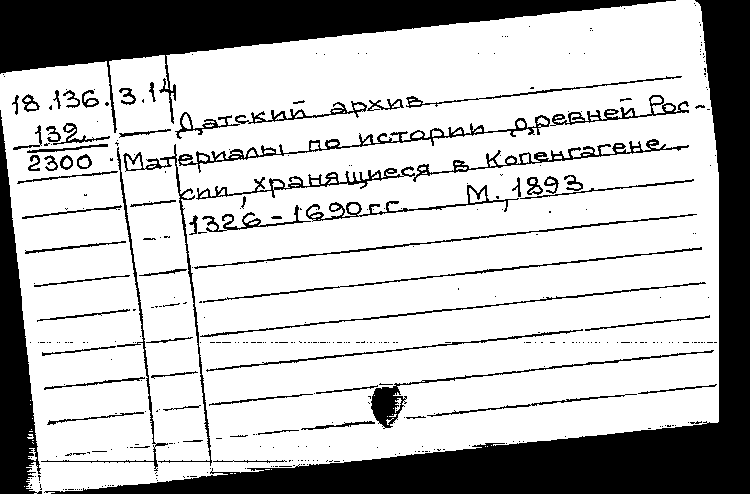 18.136.3.14
Датский архив.
132
Материалы по истории древней Рос-
2300
сии, хранящиеся в Копенгагене.
1326-1690 г.г. М., 1893.